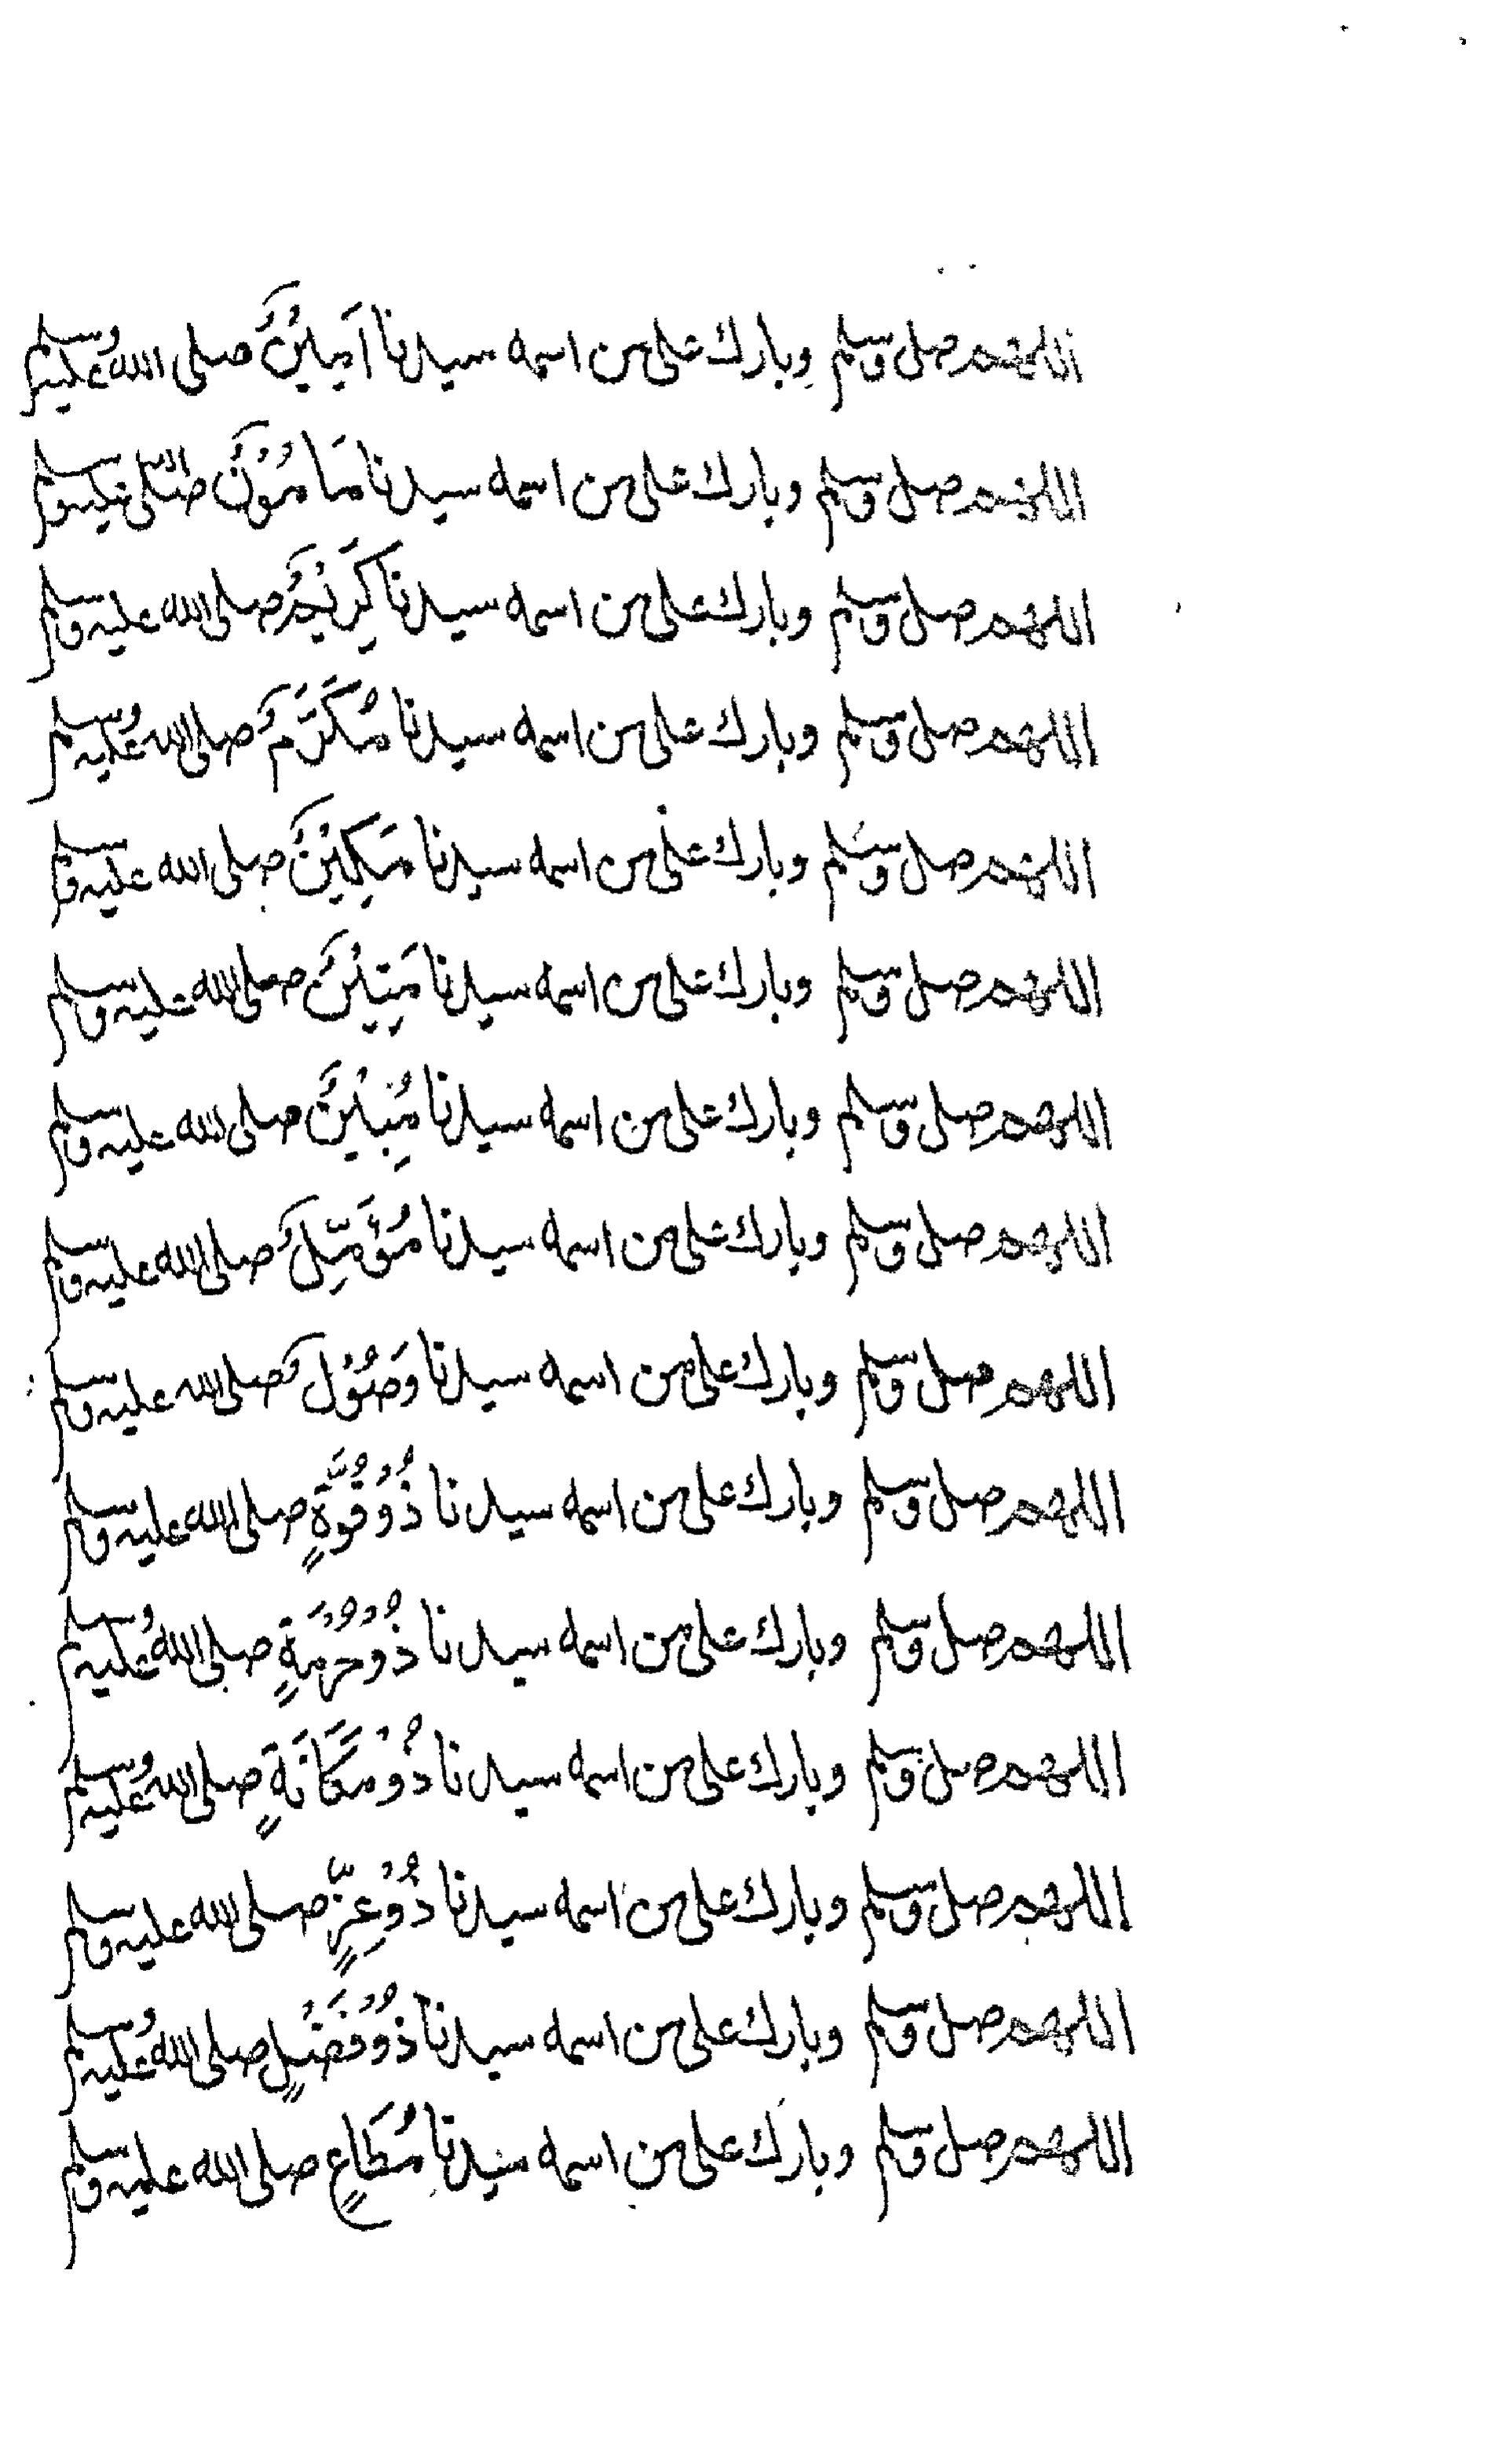 اللهم صل وسلم وبارك على من اسمه سيدنا اَمِيْنٌ صلى الله عليه وسلم
اللهم صل وسلم وبارك على من اسمه سيدنا مَامُوْنٌ صلى الله عليه وسلم
اللهم صل وسلم وبارك على من اسمه سيدنا كَرِيْمٌ صلى الله عليه وسلم
اللهم صل وسلم وبارك على من اسمه سيدنا مُكَرَّمٌ صلى الله عليه وسلم
اللهم صل وسلم وبارك على من اسمه سيدنا مَكِيْنٌ صلى الله عليه وسلم
اللهم صل وسلم وبارك على من اسمه سيدنا مَتِيْنٌ صلى الله عليه وسلم
اللهم صل وسلم وبارك على من اسمه سيدنا مُبِيْنٌ صلى الله عليه وسلم
اللهم صل وسلم وبارك على من اسمه سيدنا مُؤَمِّلٌ صلى الله عليه وسلم
اللهم صل وسلم وبارك على من اسمه سيدنا وَصُوْلٌ صلى الله عليه وسلم
اللهم صل وسلم وبارك على من اسمه سيدنا ذُوْ قُوَّةٍ صلى الله عليه وسلم
اللهم صل وسلم وبارك على من اسمه سيدنا ذُوْ حُرْمَةٍ صلى الله عليه وسلم
اللهم صل وسلم وبارك على من اسمه سيدنا ذُوْ مَكَانَةٍ صلى الله عليه وسلم
اللهم صل وسلم وبارك على من اسمه سيدنا ذُوْ عِزٍّ صلى الله عليه وسلم
اللهم صل وسلم وبارك على من اسمه سيدنا ذُوْ فَضْلٍ صلى الله عليه وسلم
اللهم صل وسلم وبارك على من اسمه سيدنا مُطَاعٍ صلى الله عليه وسلم